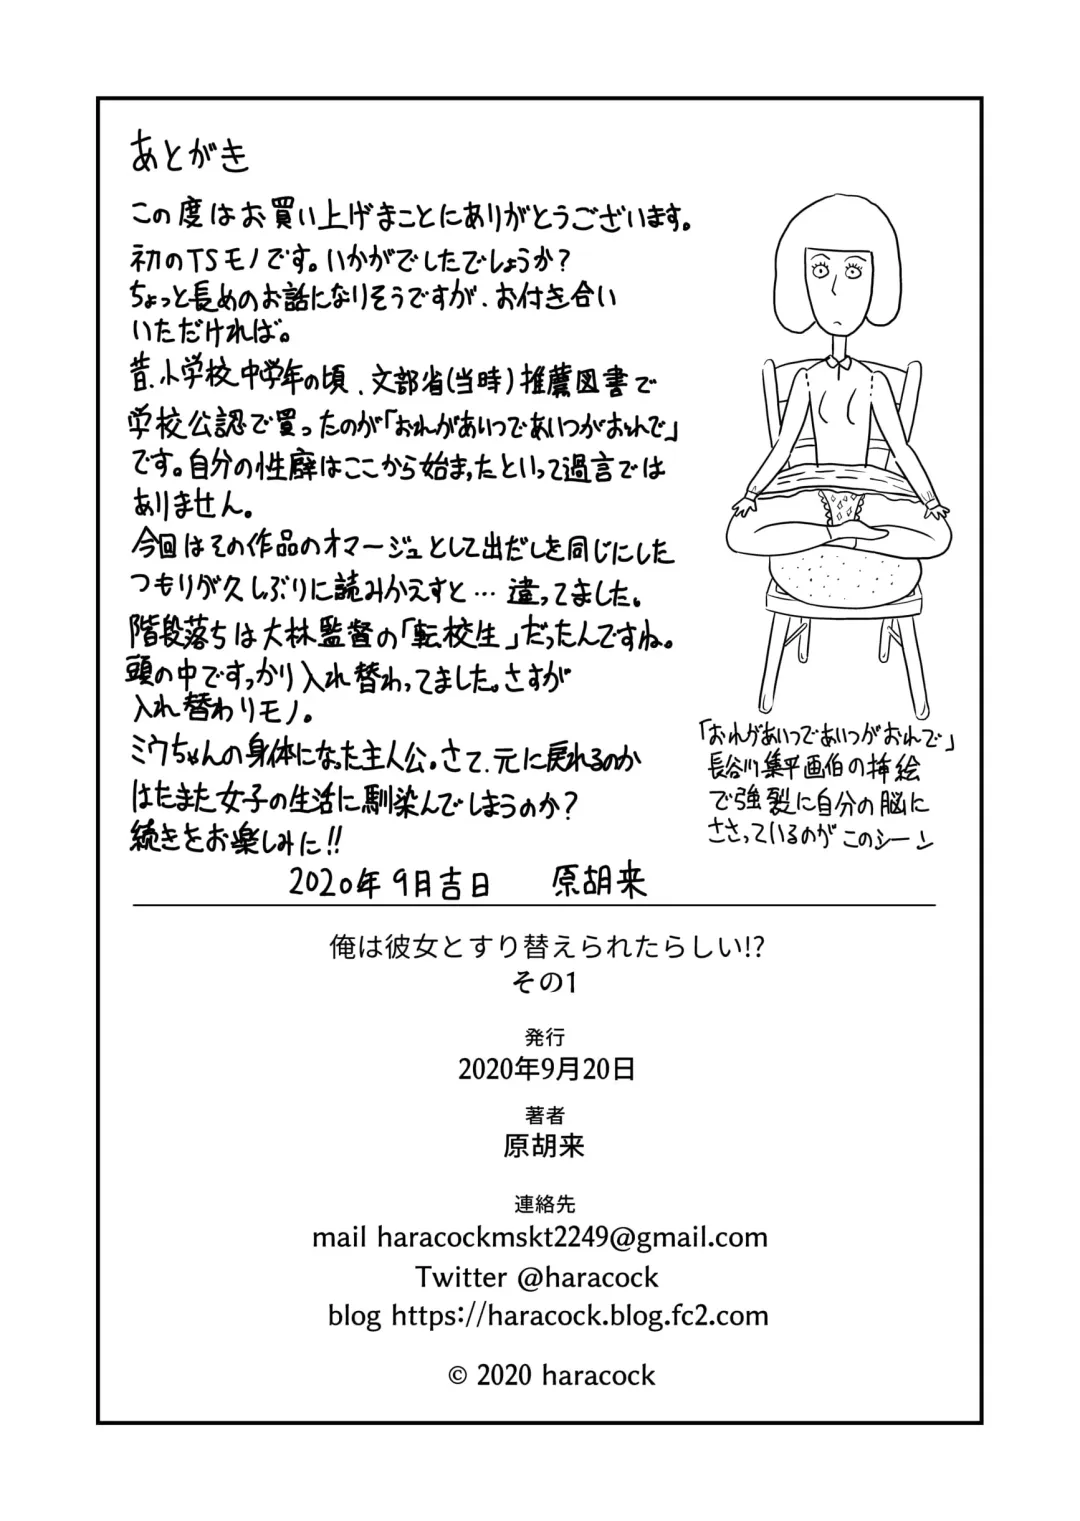 あとがき
この度はお買い上げまことにありがとうございます。
初のTSモノです。いかがでしたでしょうか?
ちょっと長めのお話になりそうですが、お付き合い
いただければ。
昔、小学校、中学年の頃、文部省(当時)推薦図書で
学校公認で買ったのが「おれがあいつであいつがおれで」
です。自分の性癖はここから始まったといって過言では
ありません。
今回はその作品のオマージュとして出だしを同じにした
つもりが久しぶりに読みかえすと…違ってました。
階段落ちは大林監督の「転校生」だったんですね。
頭の中ですっかり入れ替わってました。さすが
入れ替わりモノ。
ミウちゃんの身体になった主人公。さて、元に戻れるのか
はたまた女子の生活に馴染んでしまうのか?
続きをお楽しみに!!
2020年9月吉日 原胡来
「おれがあいつであいつがおれで」
長谷川集平画伯の挿絵
で強裂に自分の脳に
ささっているのがこのシーン
俺は彼女とすり替えられたらしい!?
その1
発行
2020年9月20日
著者
原胡来
連絡先
mail haracockmskt2249@gmail.com
Twitter @haracock
blog https://haracock.blog.fc2.com
© 2020 haracock